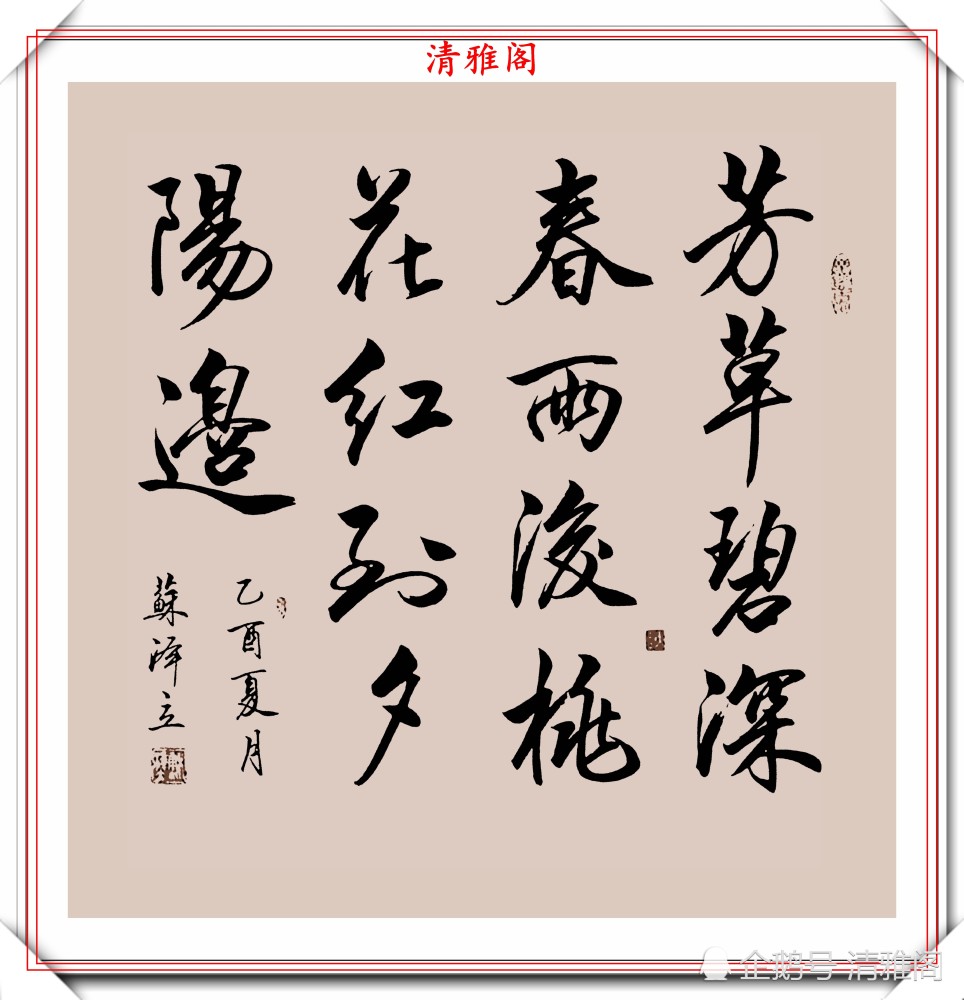 清雅阁
芳草碧深
春雨後桃
花红到夕
陽邉
乙酉夏月
蘇泽立
企鹅号 清雅阁